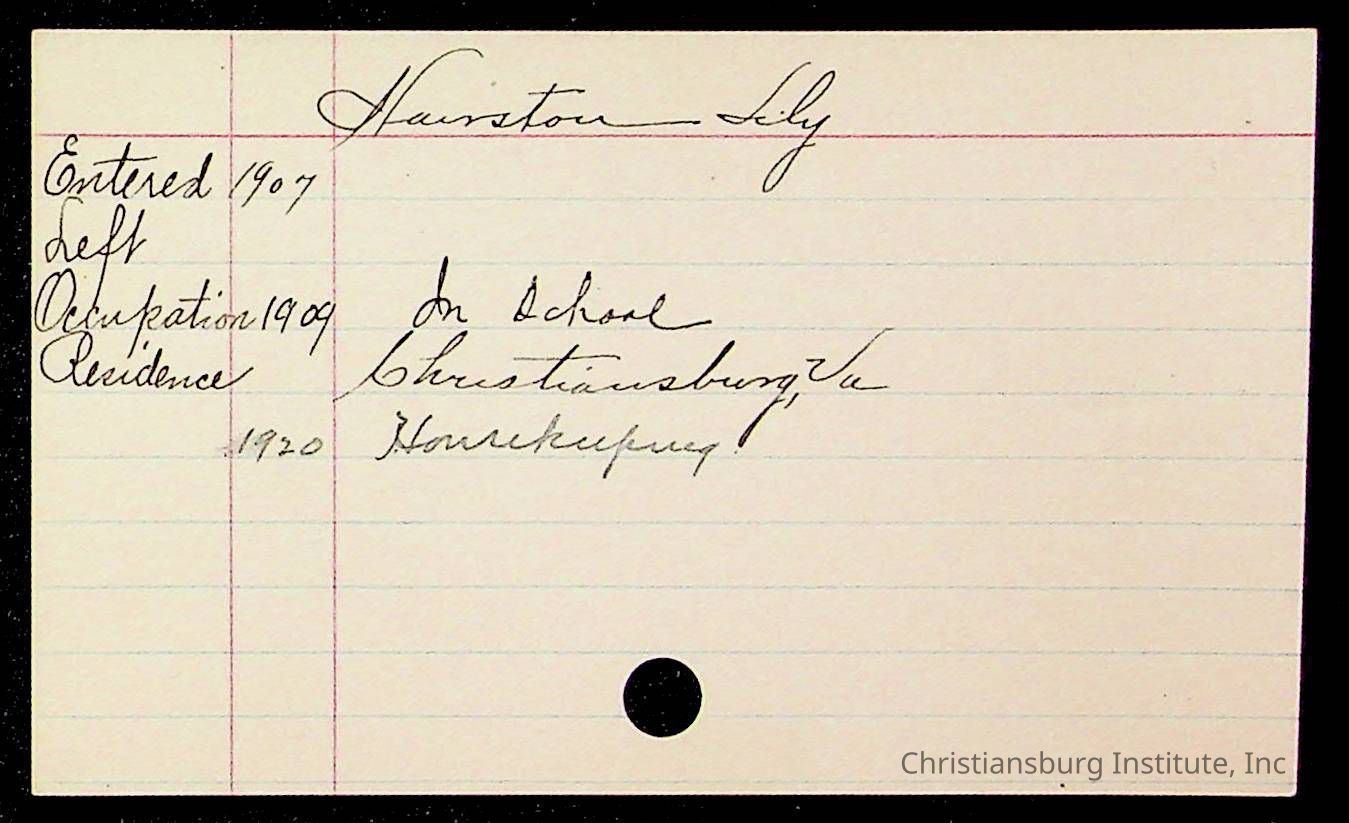 Hairston Lily
Entered 1907
Left
Occupation 1909 In School
Residence Christiansburg, Va
1920 Housekeeping
Christiansburg Institute, Inc